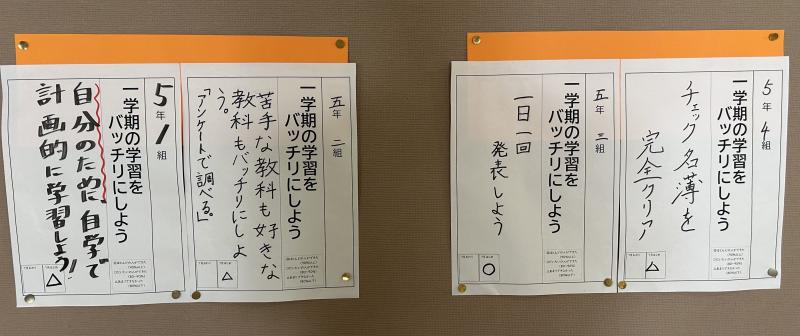 5年1組
一学期の学習を
バッチリにしよう
自分のために、自学で
計画的に学習しよう!
△
五年二組
一学期の学習を
バッチリにしよう
苦手な教科も好きな
教科もバッチリにしよ
う。
「アンケートで調べる。」
△
五年三組
一学期の学習を
バッチリにしよう
一日一回
発表しよう
○
5年4組
一学期の学習を
バッチリにしよう
チェック名簿を
完全クリア
△